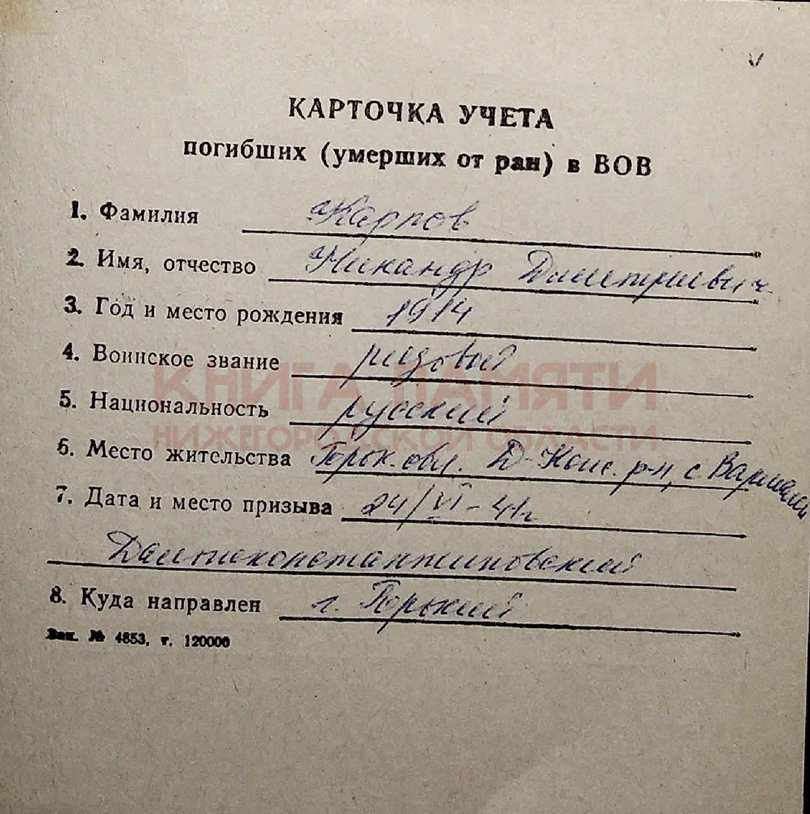 КАРТОЧКА УЧЕТА
погибших (умерших от ран) в ВОВ
1. Фамилия Карпов
2. Имя, отчество Никандр Дмитриевич
3. Год и место рождения 1914
4. Воинское звание рядовой
КНИГА ПАМЯТИ
5. Национальность русский
НИЖЕГОРОДСКОЙ ОБЛАСТИ
6. Место жительства Горьк. обл. Д-Конс. р-н, с.
7. Дата и место призыва 24/VI-41г
Дальнеконстантиновский
8. Куда направлен г. Горький
Зак. № 4853, т. 120000